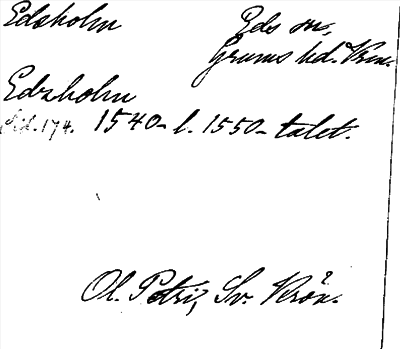 Edsholm Eds sn,
Grums hd. Vrm.
Edzholm
Sid. 174. 1540- l. 1550-talet.
Ol. Petri, Sv. Krön.